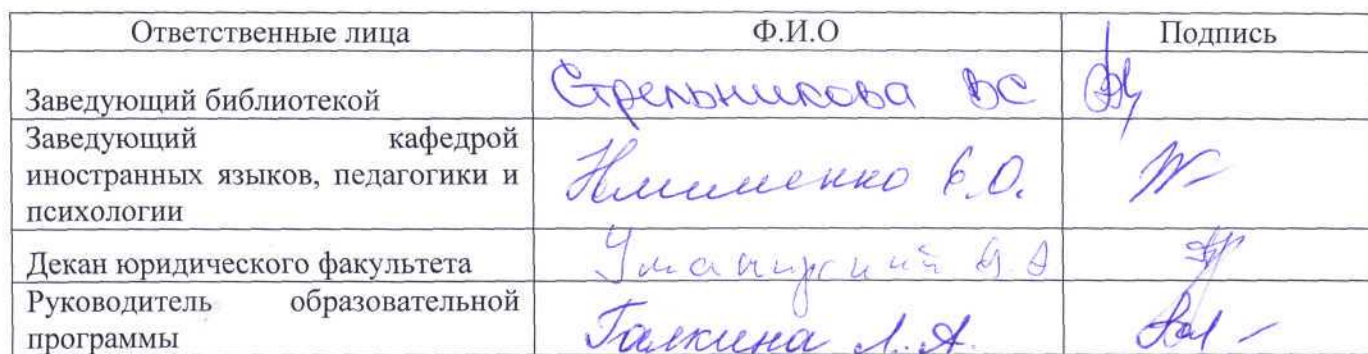 Ответственные лица Ф.И.О Подпись
Заведующий библиотекой Стрельникова ВС
Заведующий кафедрой
иностранных языков, педагогики и
психологии
Декан юридического факультета
Руководитель образовательной
программы Галкина Л.А.